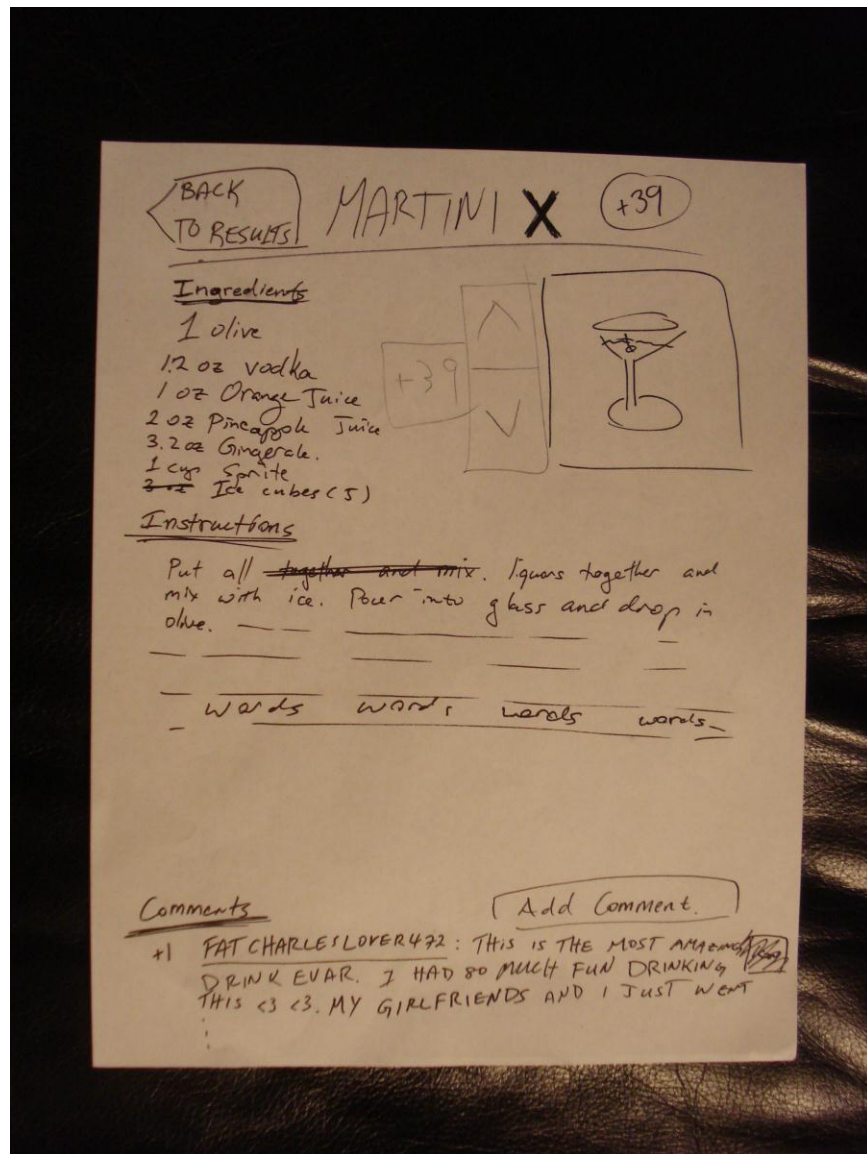 BACK
TO RESULTS
MARTINI X
+39
Ingredients
1 olive
1.2 oz vodka
1 oz Orange Juice
2 oz Pineapple Juice
3.2 oz Gingerale.
1 cup Sprite
3 oz Ice cubes (5)
+39
Instructions
Put all together and mix. liquors together and
mix with ice. Pour into glass and drop in
olive.
words words words words
Comments
Add Comment.
+1 FATCHARLESLOVER472: THIS IS THE MOST AMAZING
DRINK EVAR. I HAD SO MUCH FUN DRINKING
THIS <3 <3. MY GIRLFRIENDS AND I JUST WENT